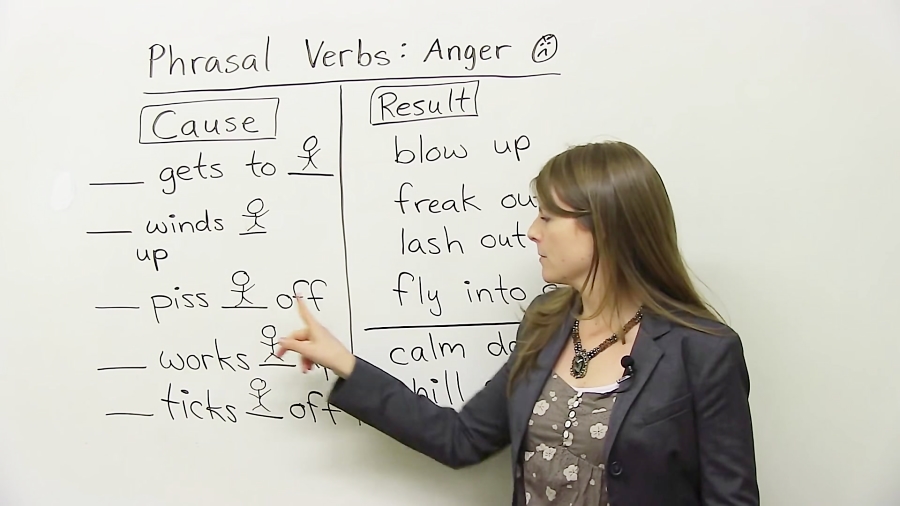 Phrasal Verbs: Anger
Cause
___ gets to ___
___ winds ___
up
___ piss ___ off
___ works ___
___ ticks ___ off
Result
blow up
freak
lash out
fly into
calm